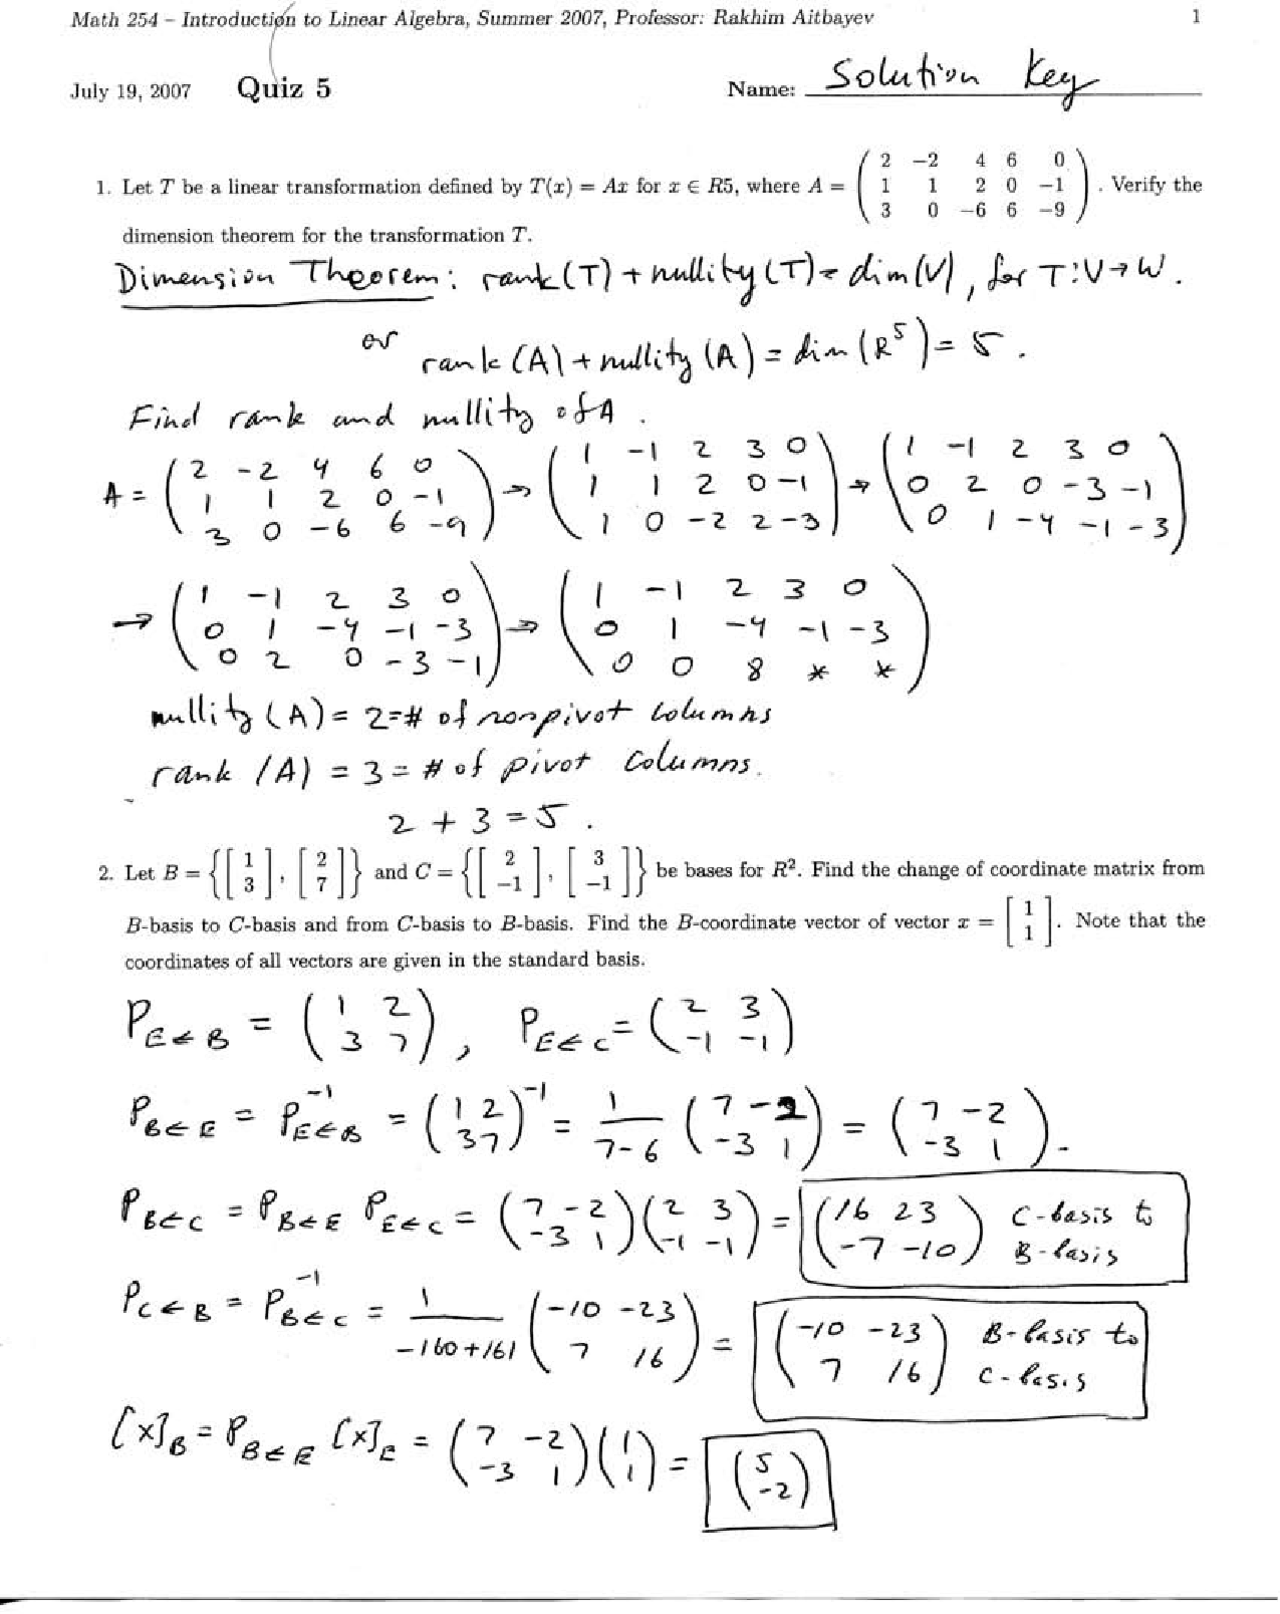 Math 254 – Introduction to Linear Algebra, Summer 2007, Professor: Rakhim Aitbayev 1
July 19, 2007 Quiz 5 Name: Solution Key
1. Let T be a linear transformation defined by T(x) = Ax for x ∈ R5, where A = ( 2 −2 4 6 0 ; 1 1 2 0 −1 ; 3 0 −6 6 −9 ). Verify the
dimension theorem for the transformation T.
Dimension Theorem: rank(T) + nullity(T) = dim(V), for T: V → W.
or rank(A) + nullity(A) = dim(R⁵) = 5.
Find rank and nullity of A.
A = ( 2 -2 4 6 0 ; 1 1 2 0 -1 ; 3 0 -6 6 -9 ) → ( 1 -1 2 3 0 ; 1 1 2 0 -1 ; 1 0 -2 2 -3 ) → ( 1 -1 2 3 0 ; 0 2 0 -3 -1 ; 0 1 -4 -1 -3 )
→ ( 1 -1 2 3 0 ; 0 1 -4 -1 -3 ; 0 2 0 -3 -1 ) → ( 1 -1 2 3 0 ; 0 1 -4 -1 -3 ; 0 0 8 * * )
nullity(A) = 2 = # of nonpivot columns
rank(A) = 3 = # of pivot columns.
2 + 3 = 5.
2. Let B = {[ 1 ; 3 ], [ 2 ; 7 ]} and C = {[ 2 ; −1 ], [ 3 ; −1 ]} be bases for R². Find the change of coordinate matrix from
B-basis to C-basis and from C-basis to B-basis. Find the B-coordinate vector of vector x = [ 1 ; 1 ]. Note that the
coordinates of all vectors are given in the standard basis.
P_{E←B} = ( 1 2 ; 3 7 ), P_{E←C} = ( 2 3 ; -1 -1 )
P_{B←E} = P_{E←B}⁻¹ = ( 1 2 ; 3 7 )⁻¹ = 1/(7-6) ( 7 -2 ; -3 1 ) = ( 7 -2 ; -3 1 ).
P_{B←C} = P_{B←E} P_{E←C} = ( 7 -2 ; -3 1 )( 2 3 ; -1 -1 ) = ( 16 23 ; -7 -10 ) C-basis to B-basis
P_{C←B} = P_{B←C}⁻¹ = 1/(-160+161) ( -10 -23 ; 7 16 ) = ( -10 -23 ; 7 16 ) B-basis to C-basis
[x]_B = P_{B←E} [x]_E = ( 7 -2 ; -3 1 )( 1 ; 1 ) = ( 5 ; -2 )